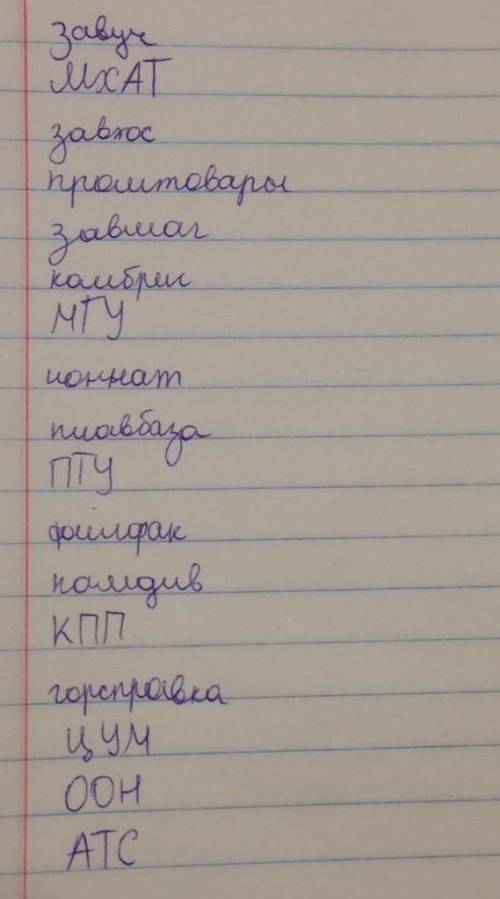 завуч
МХАТ
завхос
промтовары
завмаг
комбриг
МГУ
юннат
плавбаза
ПТУ
филфак
комдив
КПП
горсправка
ЦУМ
ООН
АТС